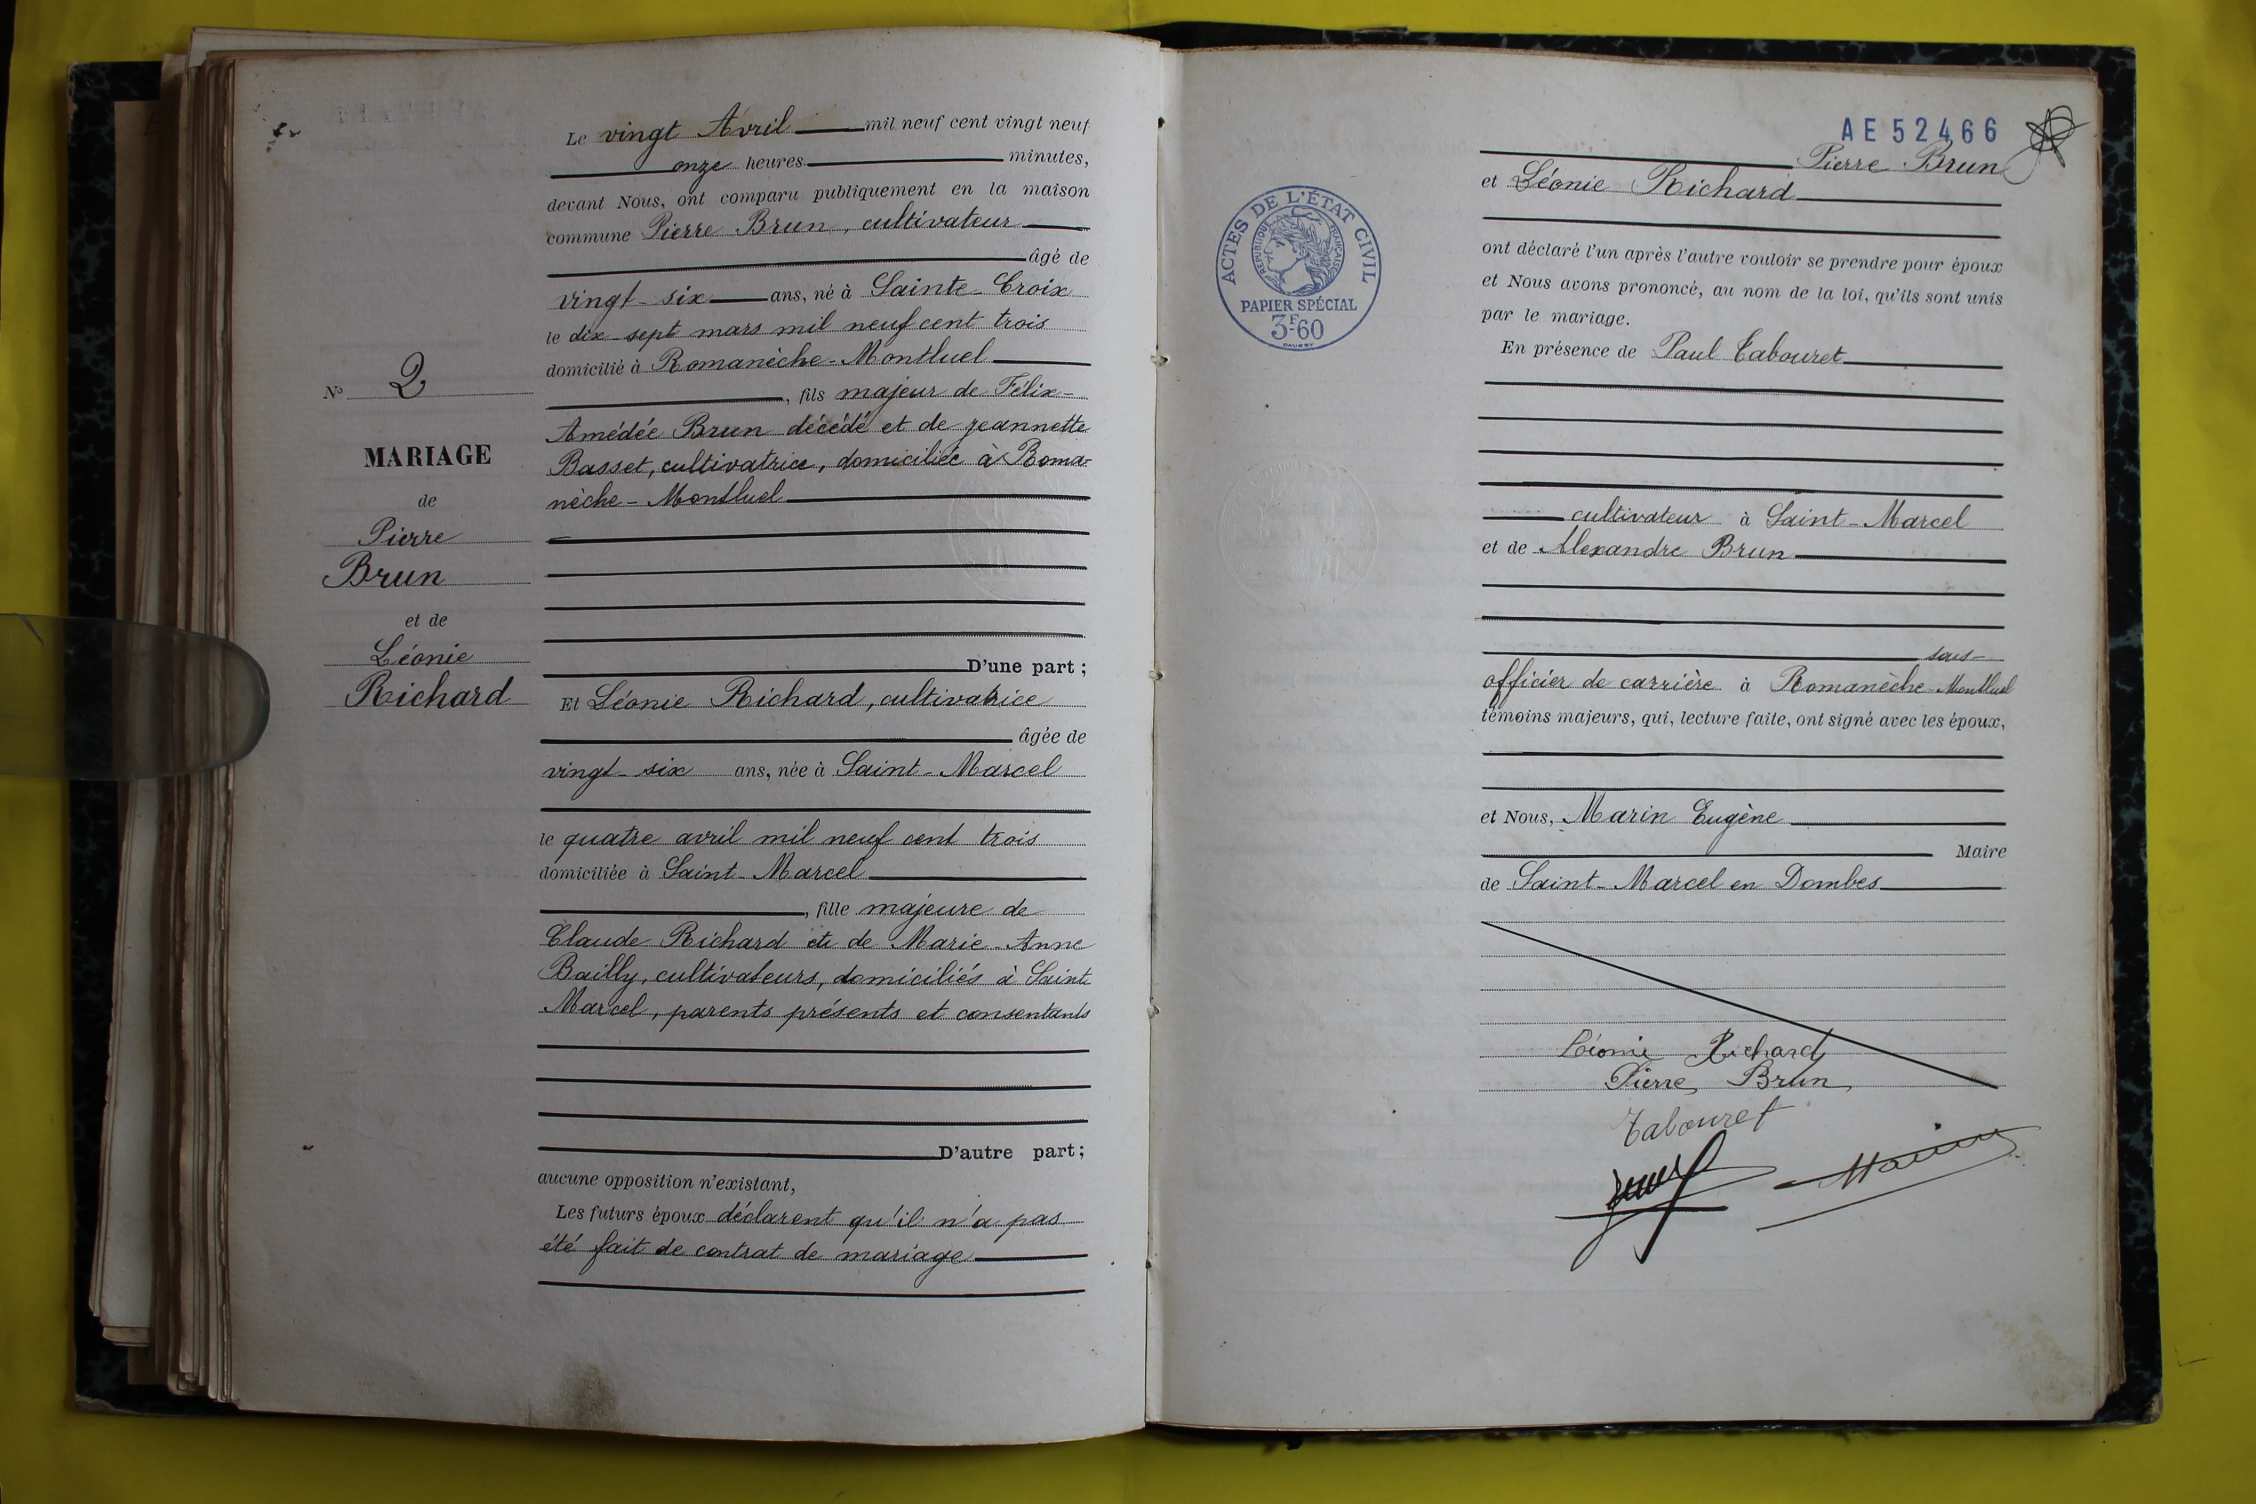 Le vingt Avril mil neuf cent vingt neuf
onze heures minutes,
devant Nous, ont comparu publiquement en la maison
commune Pierre Brun, cultivateur
âgé de
vingt-six ans, né à Sainte-Croix
le dix-sept mars mil neuf cent trois
domicilié à Romanèche-Montluel
, fils majeur de Félix-
Amédée Brun décédé et de jeannette
Basset, cultivatrice, domiciliée à Roma-
nèche-Montluel
D'une part;
Et Léonie Richard, cultivatrice
âgée de
vingt-six ans, née à Saint-Marcel
le quatre avril mil neuf cent trois
domiciliée à Saint-Marcel
, fille majeure de
Claude Richard et de Marie-Anne
Bailly, cultivateurs, domiciliés à Saint
Marcel, parents présents et consentants
D'autre part;
aucune opposition n'existant,
Les futurs époux déclarent qu'il n'a pas
été fait de contrat de mariage
No 2
MARIAGE
de
Pierre
Brun
et de
Léonie
Richard
AE 52466
Pierre Brun
et Léonie Richard
ont déclaré l'un après l'autre vouloir se prendre pour époux
et Nous avons prononcé, au nom de la loi, qu'ils sont unis
par le mariage.
En présence de Paul Tabouret
cultivateur à Saint-Marcel
et de Alexandre Brun
sous-
officier de carrière à Romanèche-Montluel
témoins majeurs, qui, lecture faite, ont signé avec les époux,
et Nous, Marin Eugène
Maire
de Saint-Marcel en Dombes
Léonie Richard
Pierre Brun
Tabouret
Marin
ACTES DE L'ÉTAT CIVIL
RÉPUBLIQUE FRANÇAISE
PAPIER SPÉCIAL
3F60